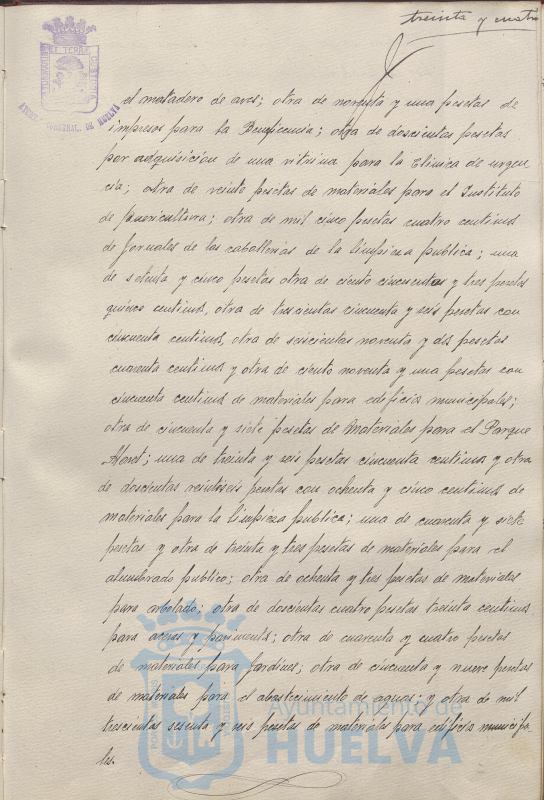 treinta y cuatro
el matadero de aves; otra de noventa y una pesetas de
impresos para la Beneficencia; otra de doscientas pesetas
por adquisicion de una vitrina para la Clinica de urgen
cia; otra de veinte pesetas de materiales para el Instituto
de puericultura; otra de mil cinco pesetas cuatro centimos
de jornales de las caballerias de la limpieza publica; una
de setenta y cinco pesetas otra de ciento cincuenta y tres pesetas
quince centimos, otra de trescientas cincuenta y seis pesetas con
cincuenta centimos, otra de seiscientas noventa y dos pesetas
cuarenta centimos y otra de ciento noventa y una pesetas con
cincuenta centimos de materiales para edificios municipales;
otra de cincuenta y siete pesetas de Materiales para el Parque
Moret; una de treinta y seis pesetas cincuenta centimos y otra
de doscientas veintiseis pesetas con ochenta y cinco centimos de
materiales para la limpieza publica; una de cuarenta y siete
pesetas y otra de treinta y tres pesetas de materiales para el
alumbrado publico; otra de ochenta y tres pesetas de materiales
para arbolado; otra de doscientas cuatro pesetas treinta centimos
para aceras y pavimento; otra de cuarenta y cuatro pesetas
de materiales para jardines; otra de cincuenta y nueve pesetas
de materiales para el abastecimiento de aguas; y otra de mil
trescientas sesenta y seis pesetas de materiales para edificios municipa
les.
Ayuntamiento de
HUELVA